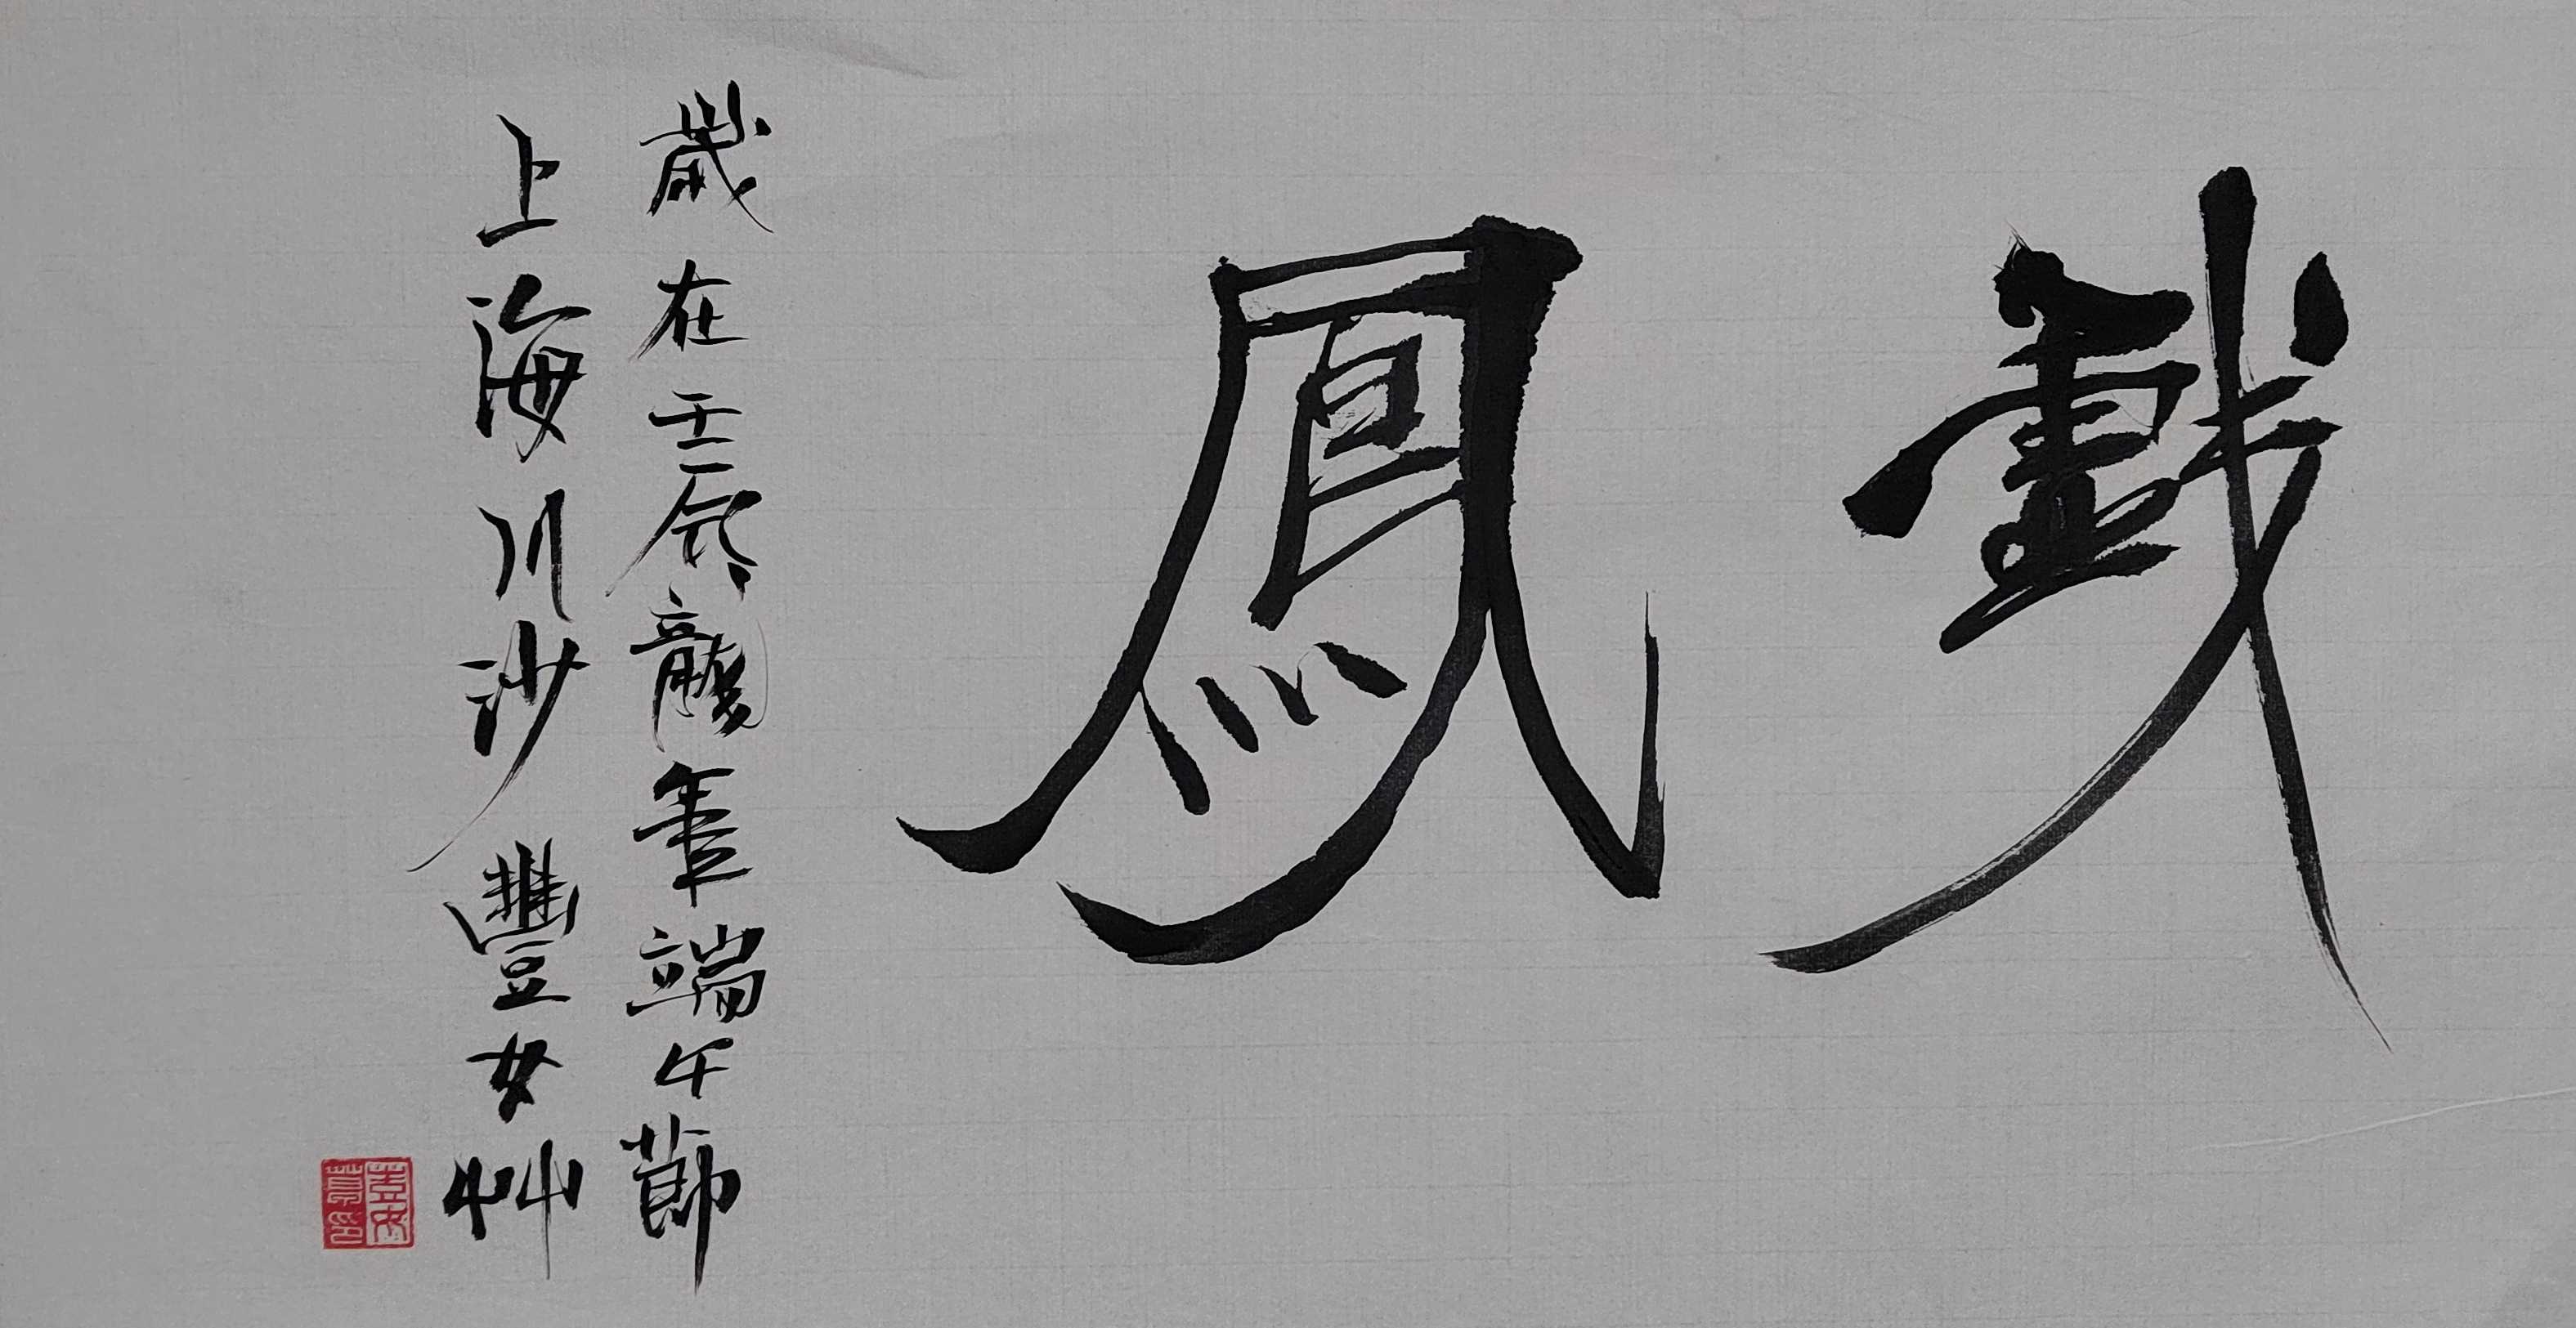 戲鳳
歲在壬辰龍年端午節
上海川沙豐女艸